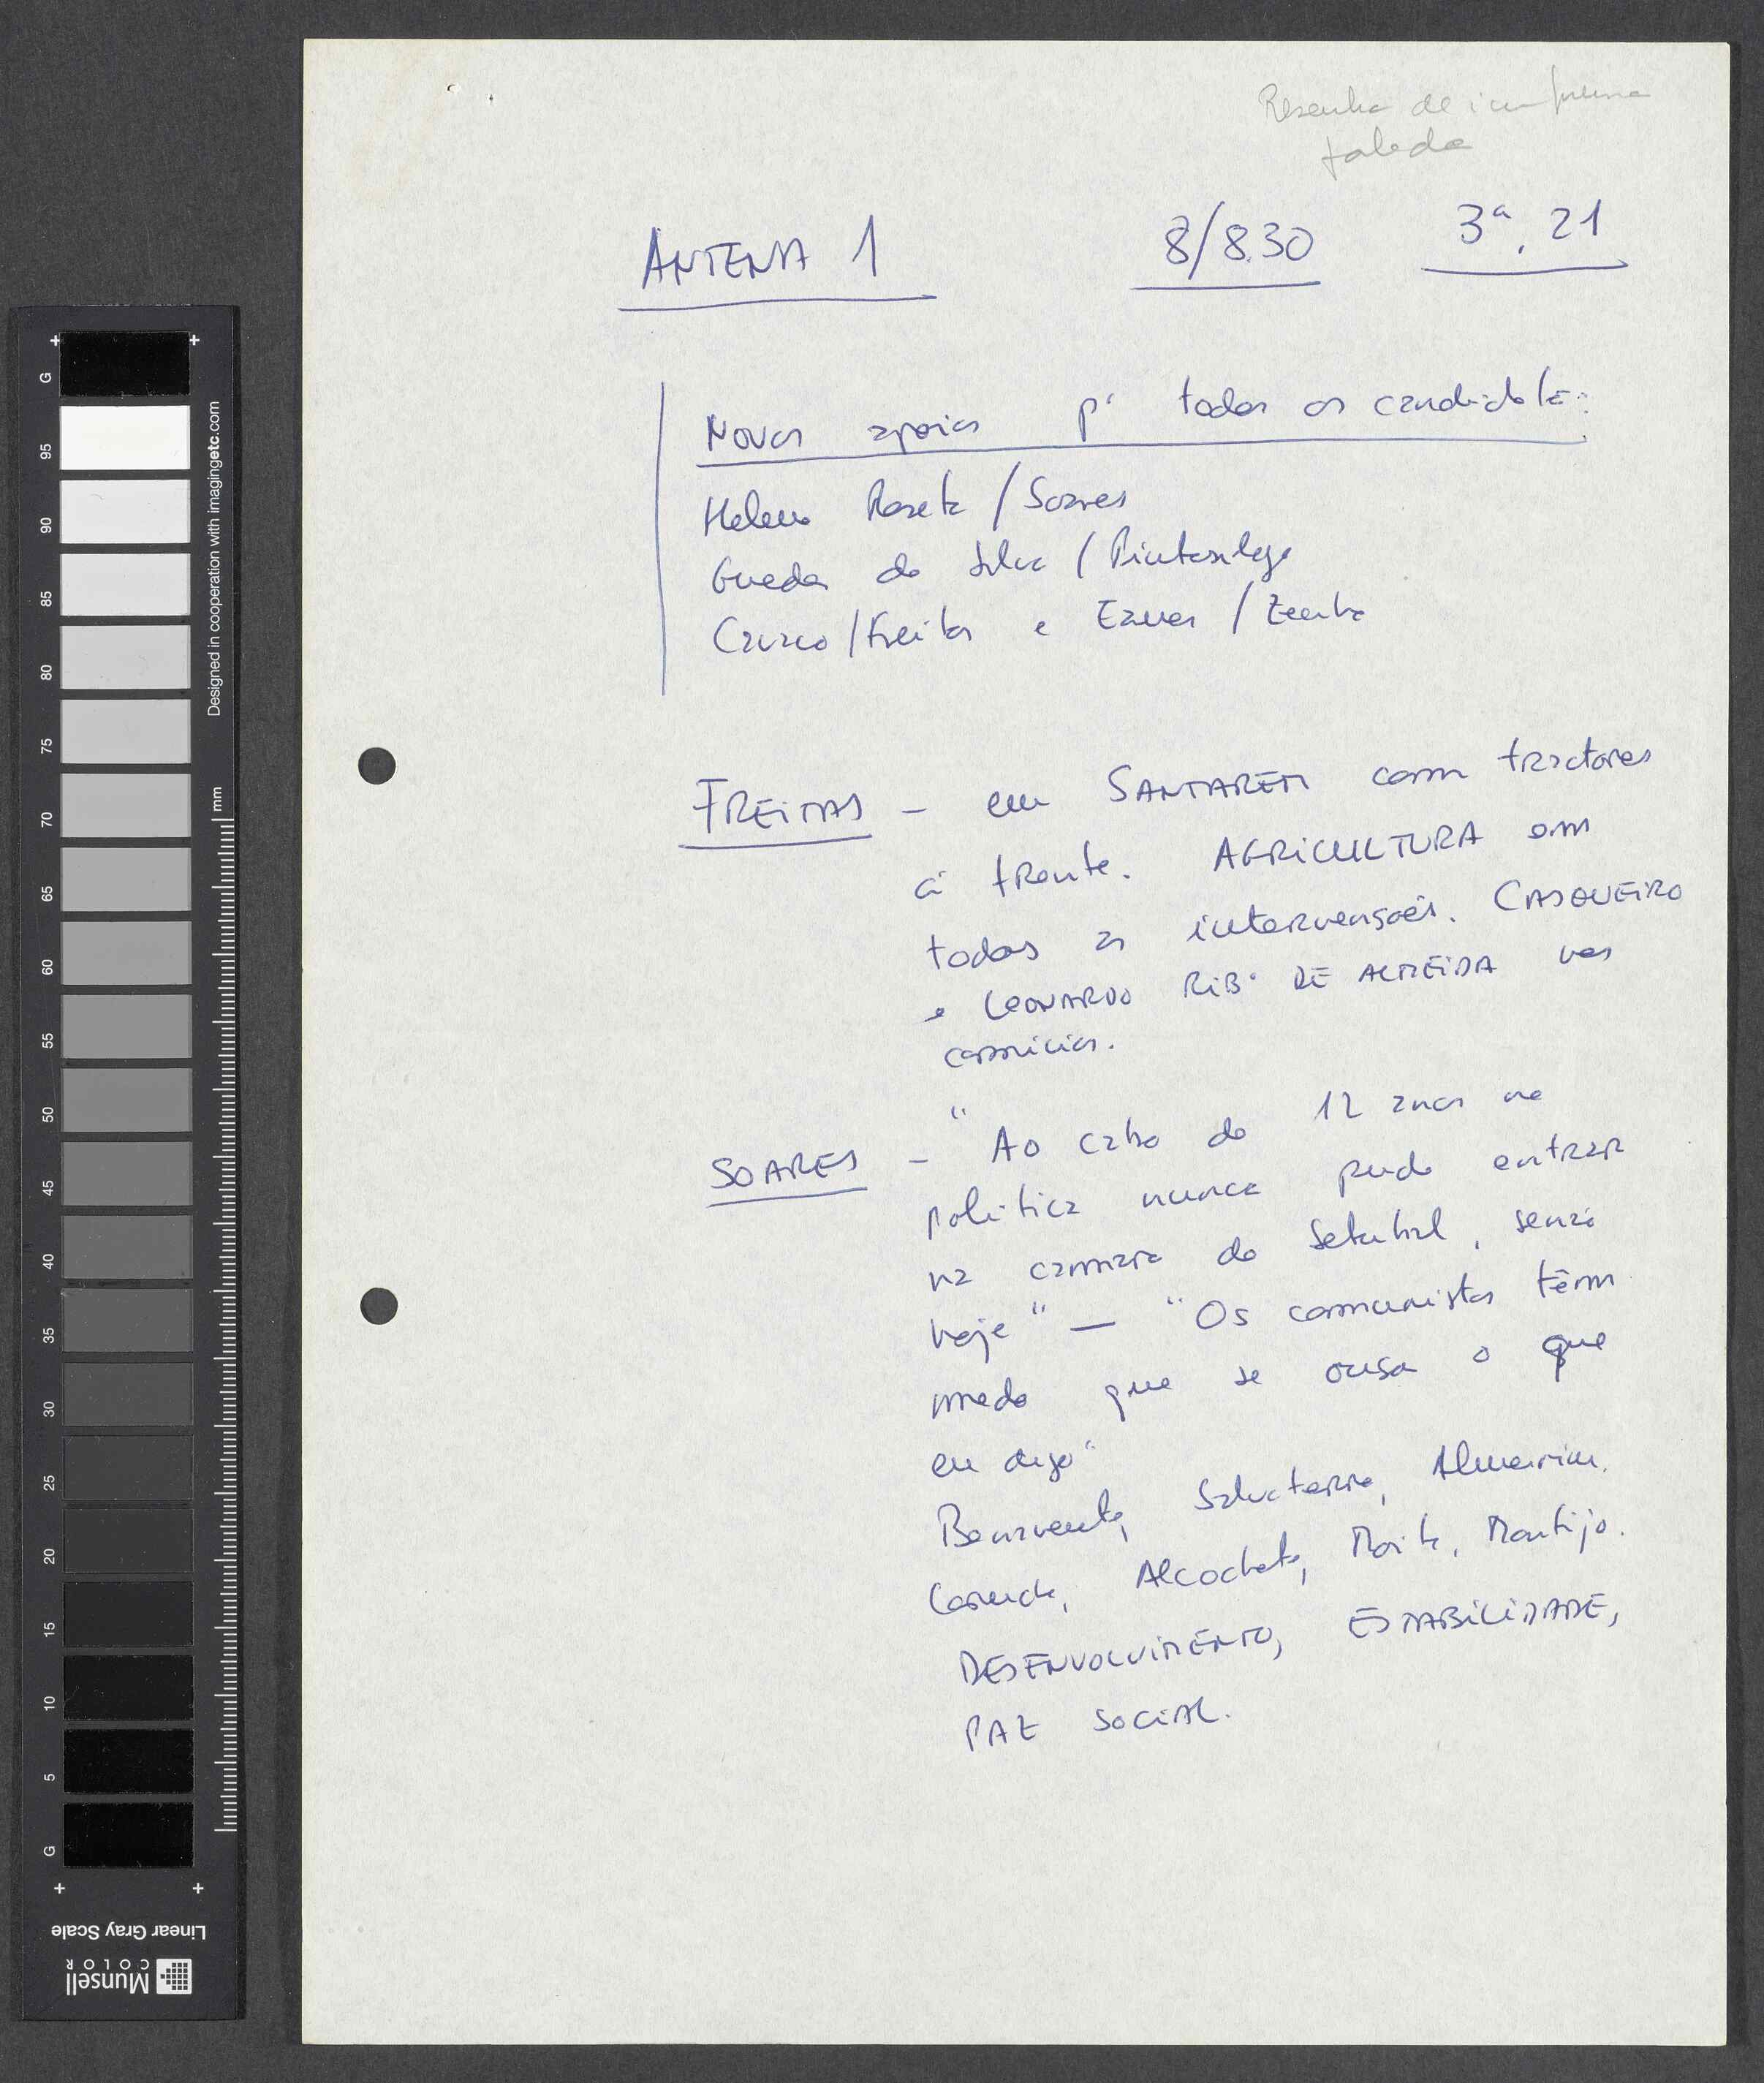 Resenha de imprensa
falada
ANTENA 1 8/8.30 3ª, 21
Novos apoios p' todos os candidatos:
Helena Roseta / Soares
Guedes da Silva / Pintasilgo
Cavaco / Freitas e Eanes / Zenha
FREITAS – em SANTAREM com tractores
à frente. AGRICULTURA em
todas as intervenções. CASQUEIRO
e LEONARDO RIBº DE ALMEIDA nos
comícios.
SOARES – "Ao cabo de 12 anos na
politica nunca pude entrar
na camara de Setubal, senão
hoje" — "Os comunistas têm
medo que se ousa o que
eu digo"
Benavente, Salvaterra, Almeirim.
Coruche, Alcochete, Moita, Montijo.
DESENVOLVIMENTO, ESTABILIDADE,
PAZ SOCIAL.
G
95
90
85
80
75
70
65
60
55
50
45
40
35
30
25
20
15
10
5
G
mm
Designed in cooperation with imagingetc.com
Linear Gray Scale
Munsell
COLOR